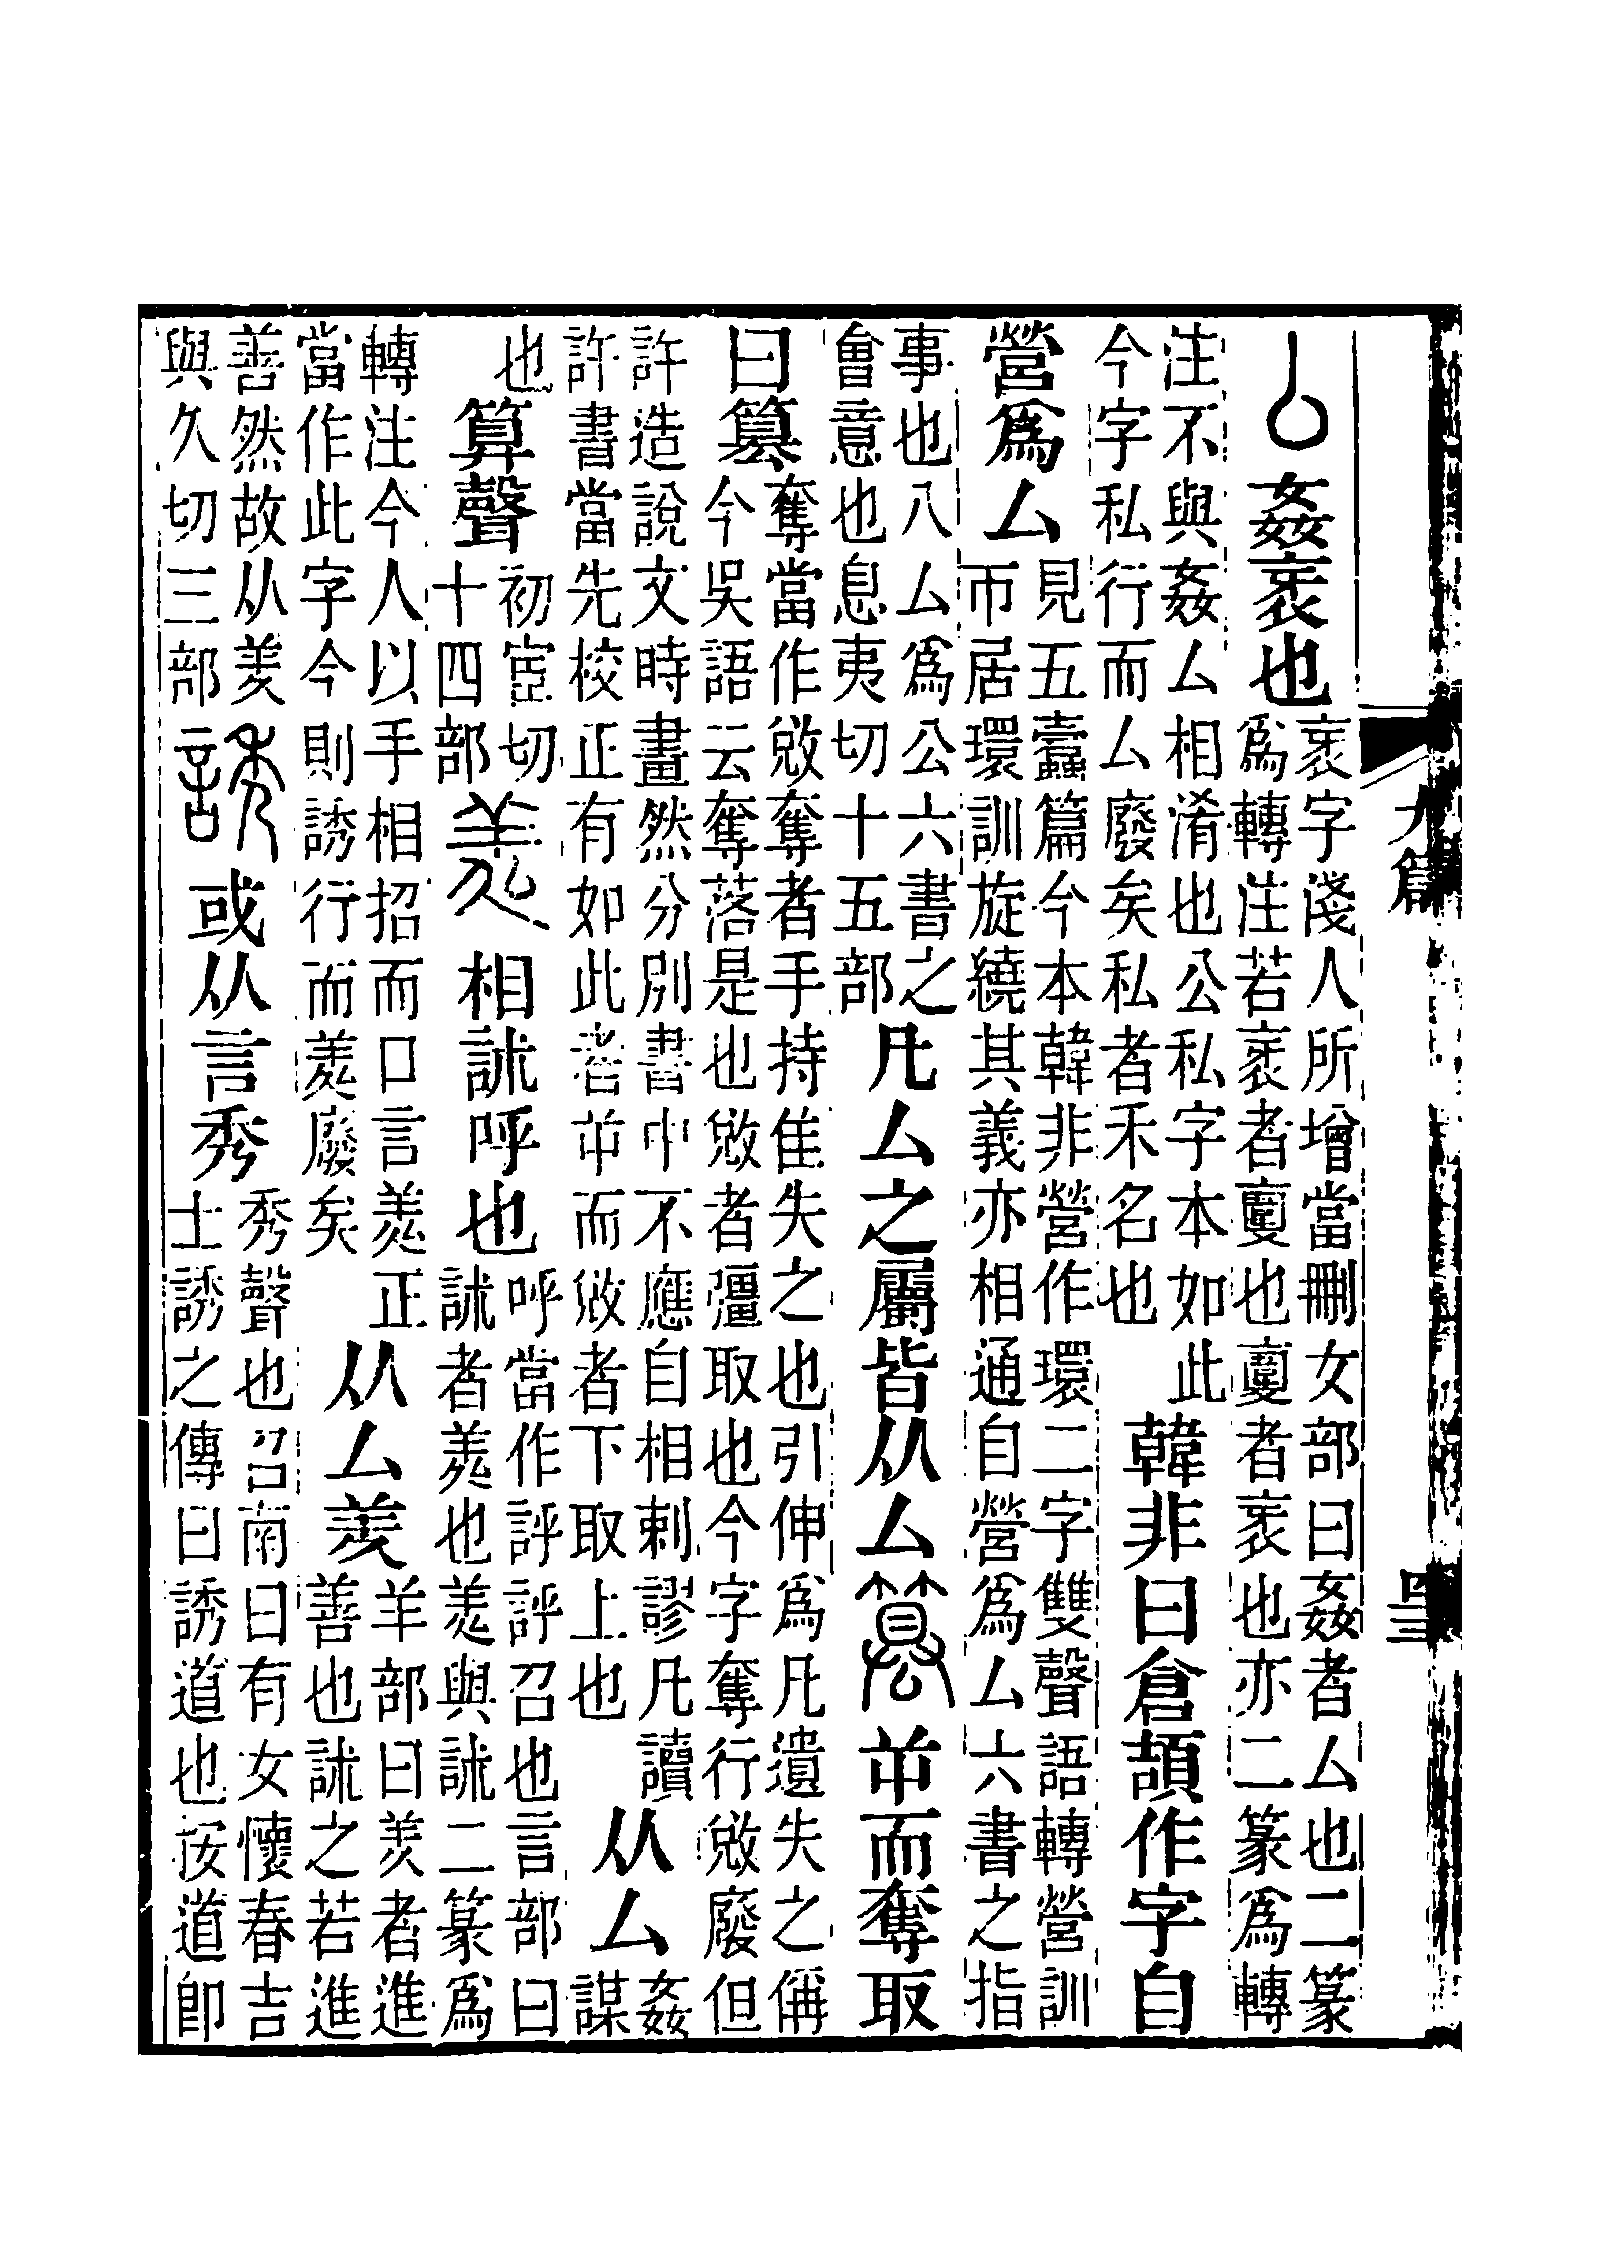 厶姦衺也衺字淺人所增當刪女部曰姦者厶也二篆爲轉注若衺者𡚇也𡚇者衺也亦二篆爲轉
注不與姦厶相淆也公私字本如此今字私行而厶廢矣私者禾名也韓非曰倉頡作字自
營爲厶見五蠹篇今本韓非營作環二字雙聲語轉營訓帀居環訓旋繞其義亦相通自營爲厶六書之指
事也八厶爲公六書之會意也息夷切十五部凡厶之屬皆从厶篡屰而奪取
曰篡奪當作敓奪者手持隹失之也引伸爲凡遺失之偁今吳語云奪落是也敓者彊取也今字奪行敓廢但
許造說文時畫然分別書中不應自相剌謬凡讀許書當先校正有如此者屰而敓者下取上也从厶姦謀
也算聲初宦切十四部㕗相訹呼也呼當作評評召也言部曰訹者㕗也㕗與訹二篆爲
轉注今人以手相招而口言㕗正當作此字今則誘行而㕗廢矣从厶羑羊部曰羑者進善也訹之若進
善然故从羑與久切三部誘或从言秀秀聲也召南曰有女懷春吉士誘之傳曰誘道也按道卽
九篇